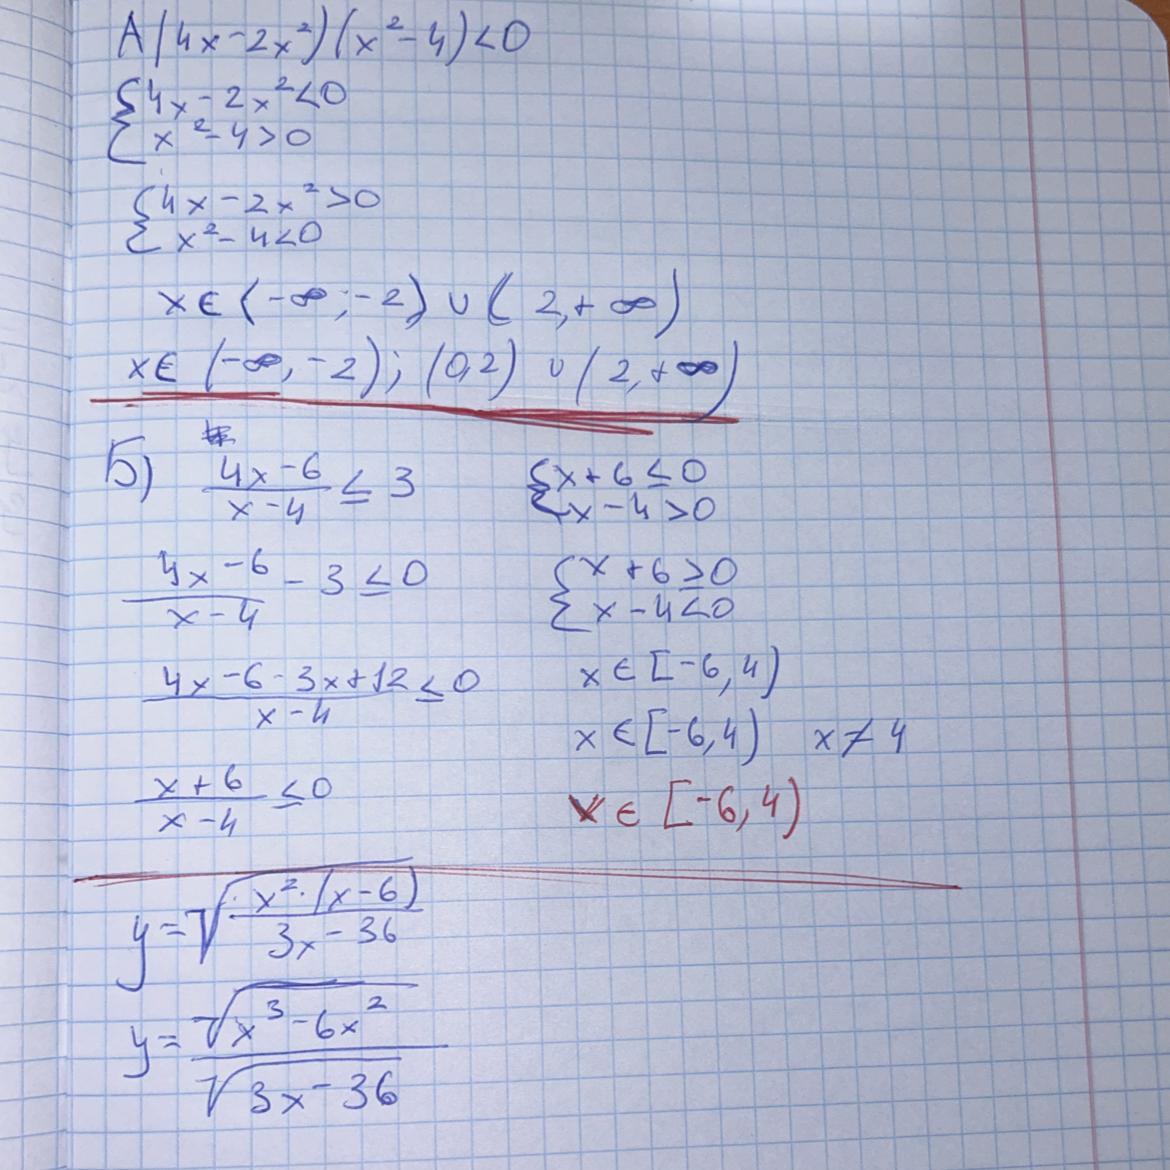 А) (4x-2x²)(x²-4)<0
{4x-2x²<0
{x²-4>0
{4x-2x²>0
{x²-4<0
x∈(-∞;-2)∪(2,+∞)
x∈(-∞,-2);(0,2)∪(2,+∞)
Б) (4x-6)/(x-4) ≤ 3
(4x-6)/(x-4) - 3 ≤ 0
(4x-6-3x+12)/(x-4) ≤ 0
(x+6)/(x-4) ≤ 0
{x+6≤0
{x-4>0
{x+6≥0
{x-4<0
x∈[-6,4)
x∈[-6,4) x≠4
x∈[-6,4)
y=√(x²·(x-6)/(3x-36))
y=√(x³-6x²)/√(3x-36)